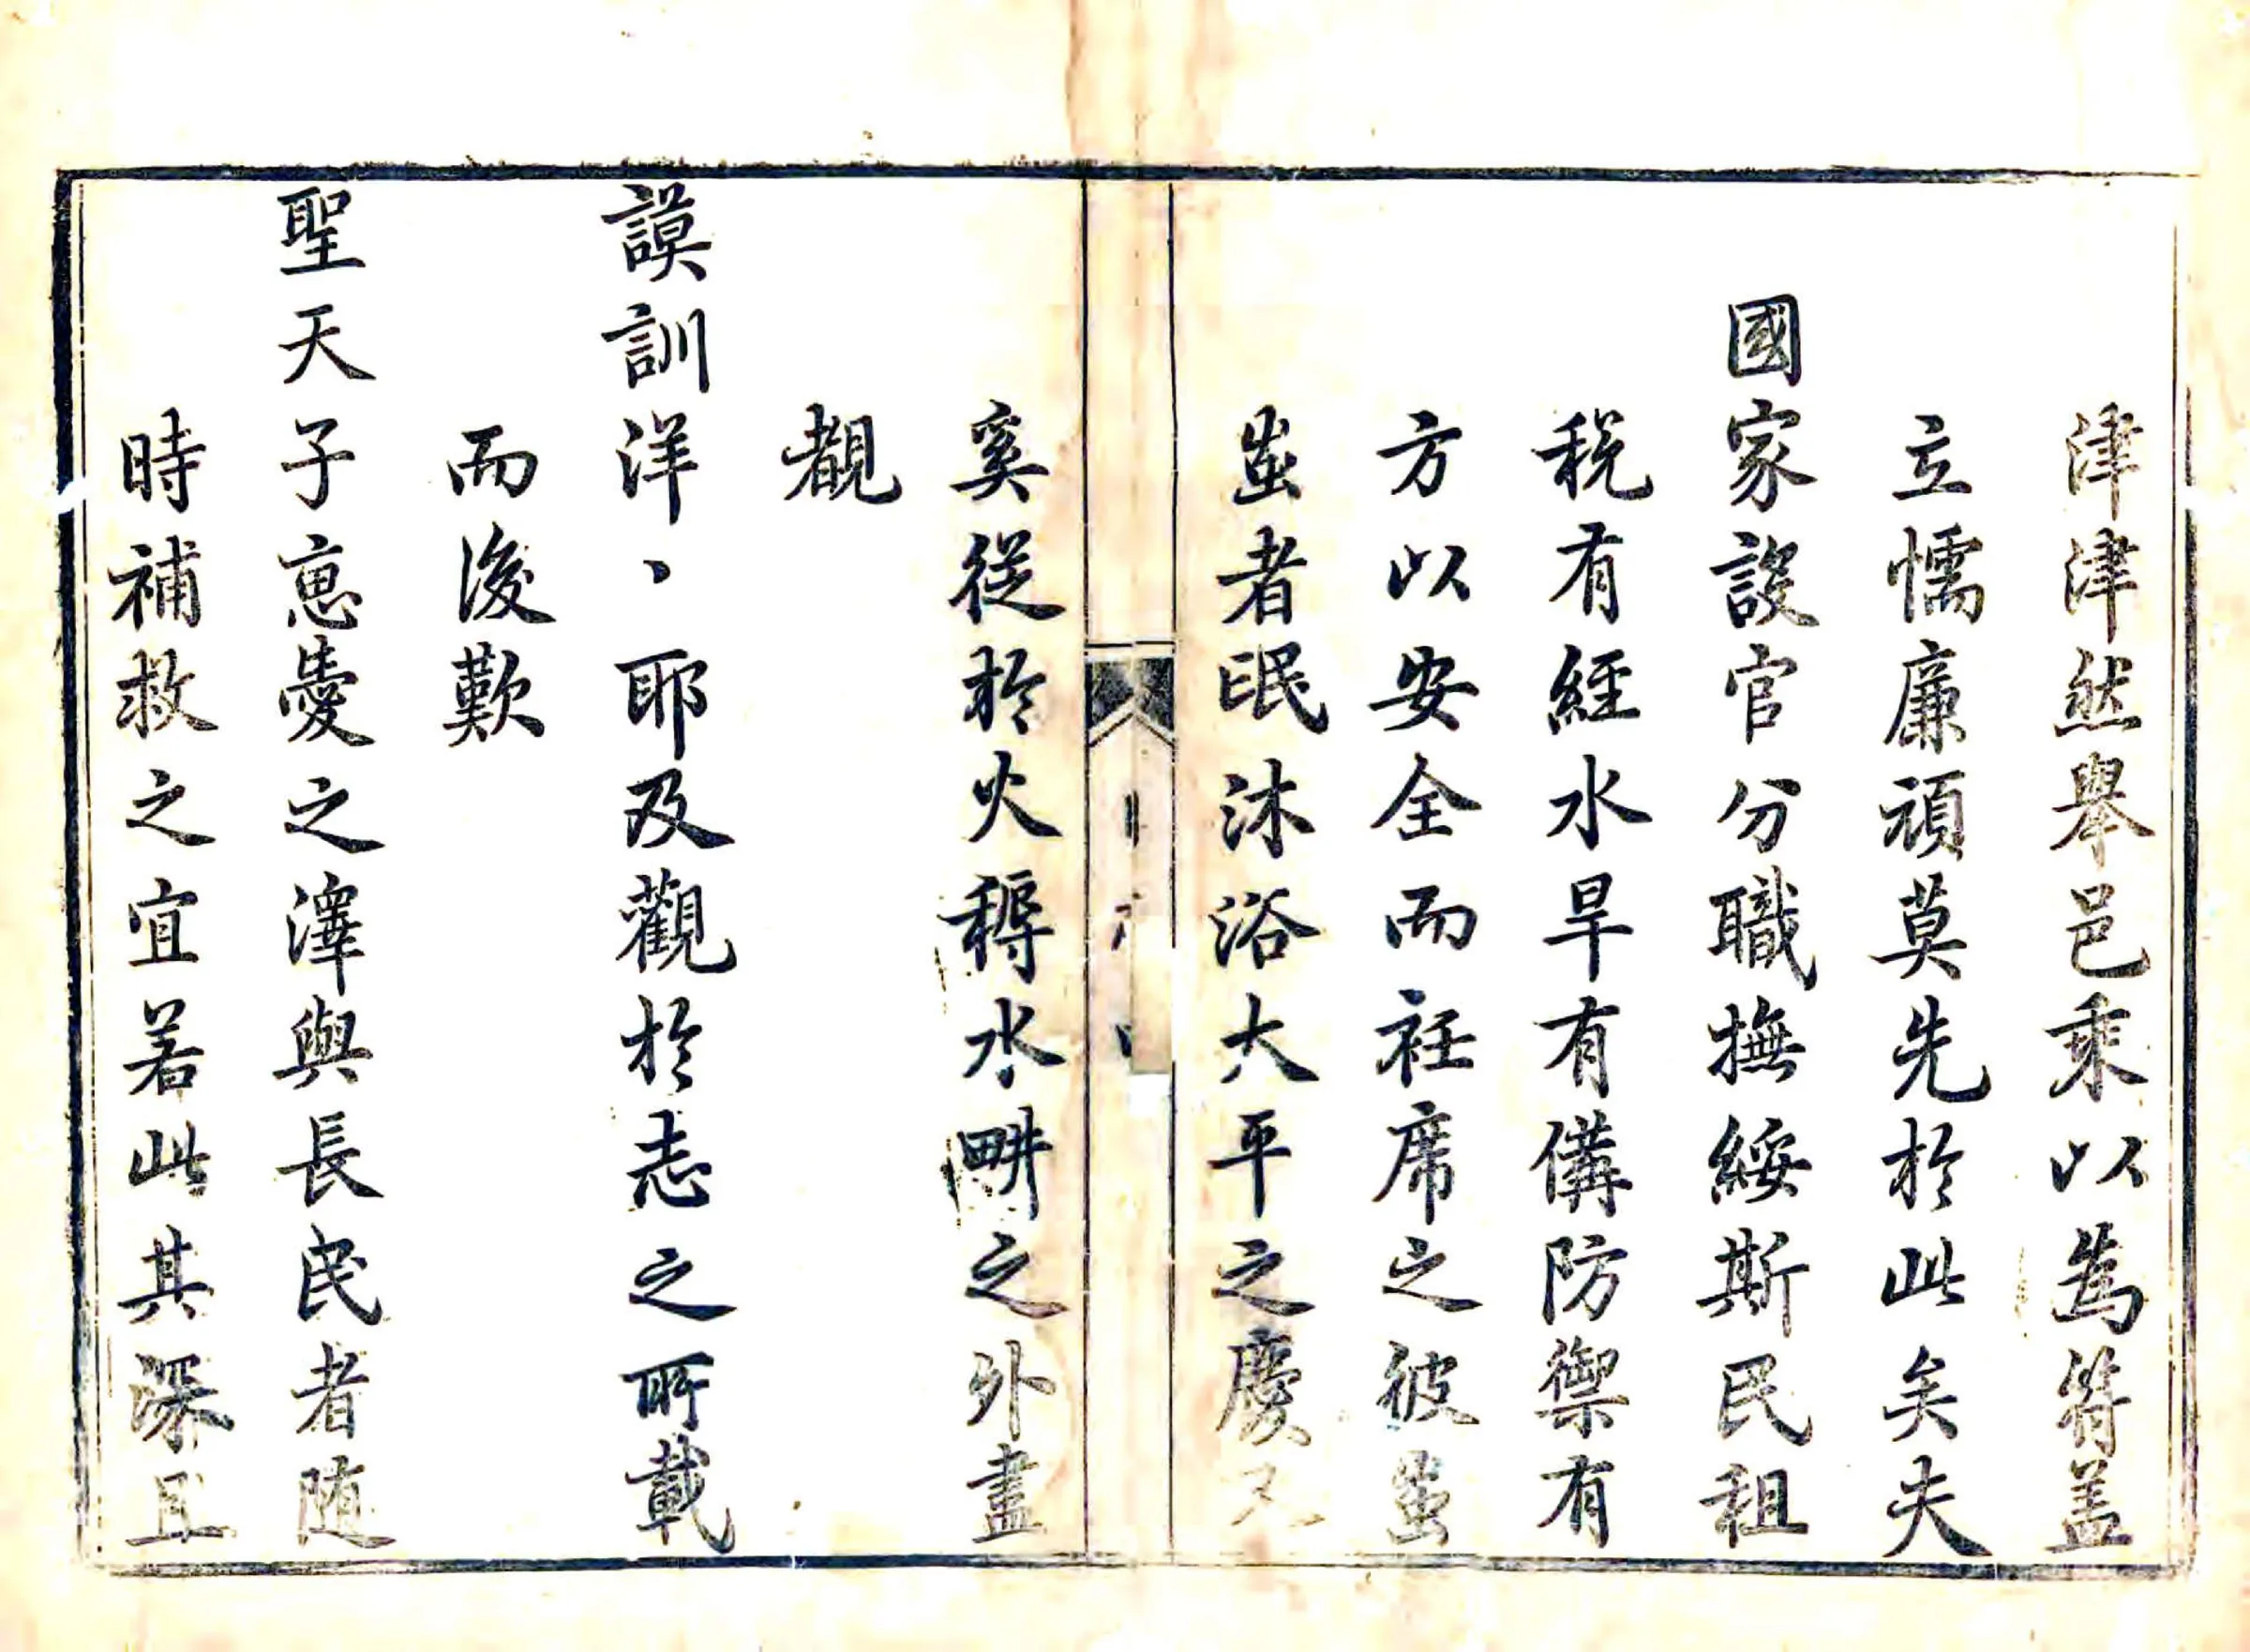 津津然舉邑乘以爲符蓋
立懦廉頑莫先於此矣夫
國家設官分職撫綏斯民租
稅有經水旱有備防禦有
方以安全而衽席之彼蚩
蚩者氓沐浴大平之慶
奚從於火耨水畊之外盡
覩
謨訓洋〻耶及觀於志之所載
而後歎
聖天子惠愛之澤與長民者隨
時補救之宜若此其深且